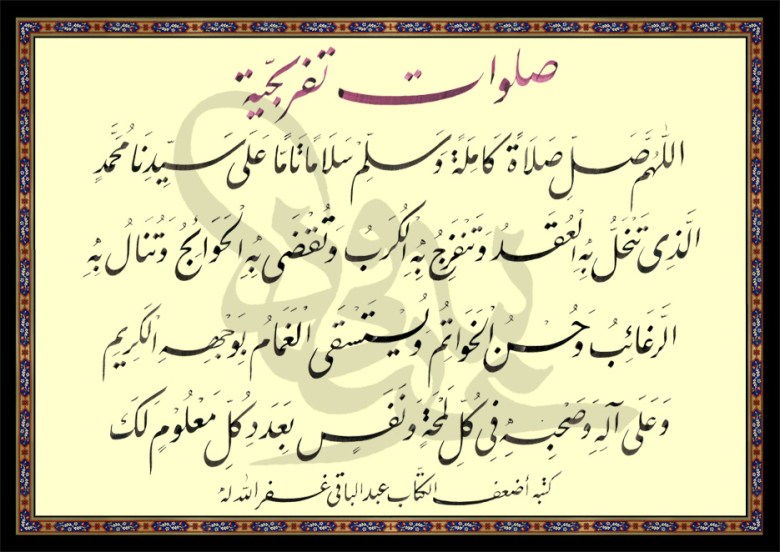 صلوات تفريجيّة
اَللّٰهُمَّ صَلِّ صَلَاةً كَامِلَةً وَسَلِّمْ سَلَامًا تَامًّا عَلَى سَيِّدِنَا مُحَمَّدٍ
الَّذِي تَنْحَلُّ بِهِ الْعُقَدُ وَتَنْفَرِجُ بِهِ الْكُرَبُ وَتُقْضَى بِهِ الْحَوَائِجُ وَتُنَالُ بِهِ
الرَّغَائِبُ وَحُسْنُ الْخَوَاتِمُ وَيُسْتَسْقَى الْغَمَامُ بِوَجْهِهِ الْكَرِيمِ
وَعَلَى آلِهِ وَصَحْبِهِ فِي كُلِّ لَمْحَةٍ وَنَفَسٍ بِعَدَدِ كُلِّ مَعْلُومٍ لَكَ
كتبه أضعف الكتّاب عبد الباقي غفر الله له